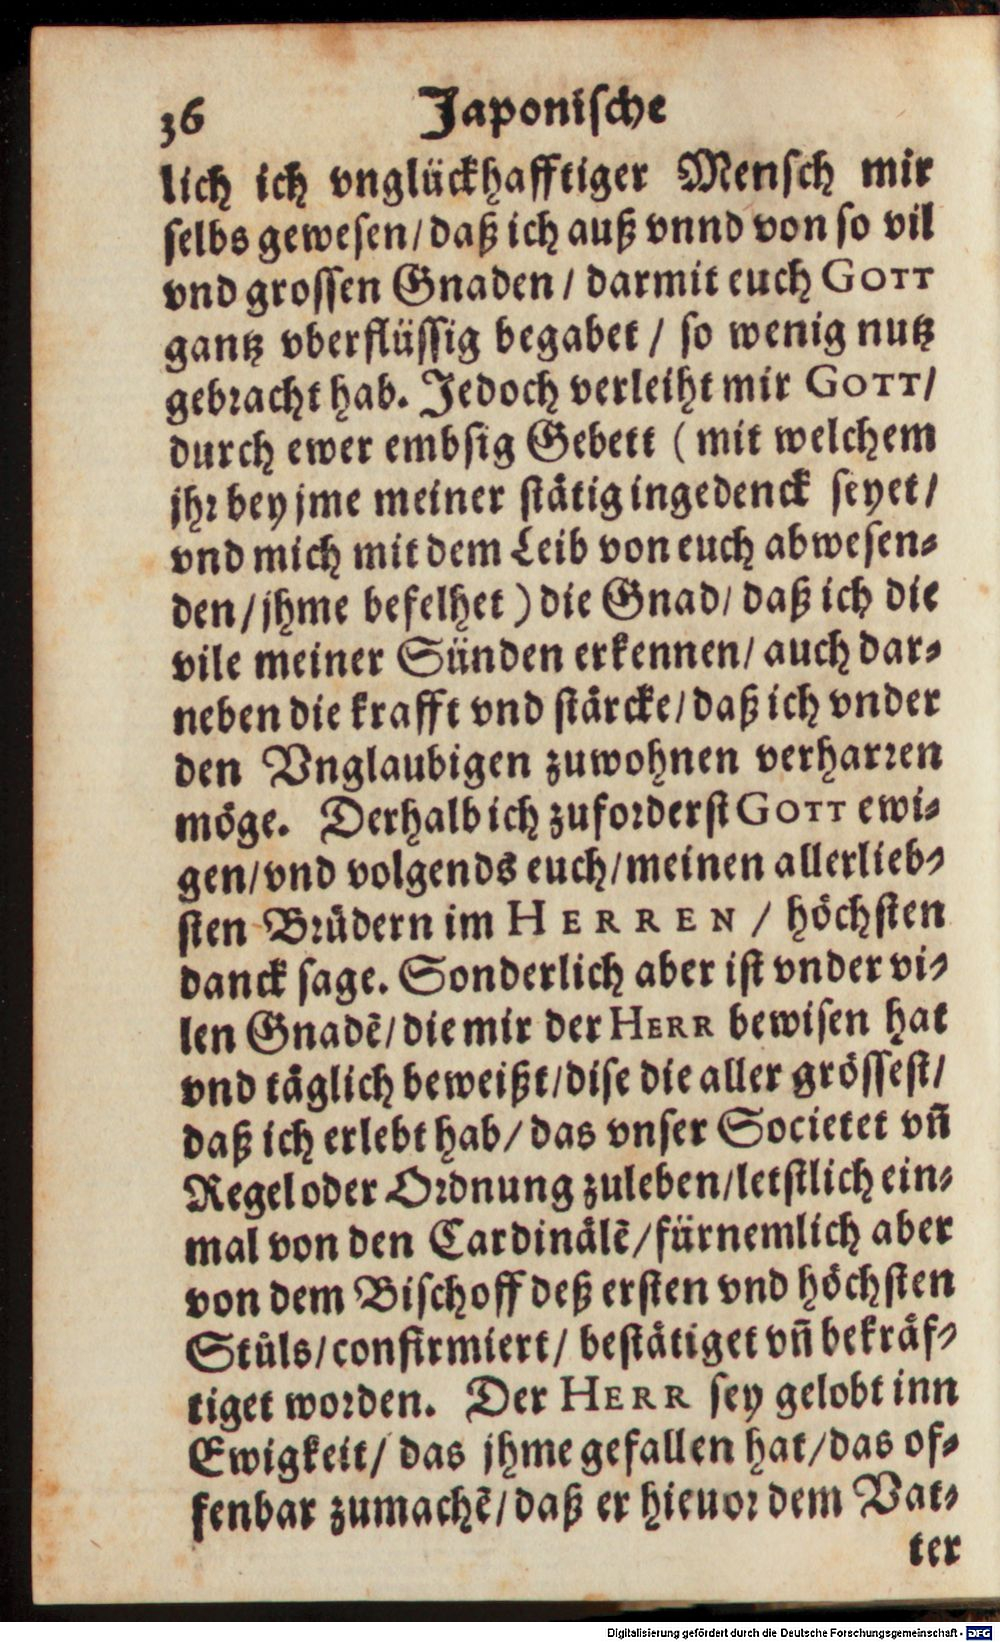 36 Japonische
lich ich vnglückhafftiger Mensch mir
selbs gewesen/ daß ich auß vnnd von so vil
vnd grossen Gnaden / darmit euch GOTT
gantz vberflüssig begabet / so wenig nutz
gebracht hab. Jedoch verleiht mir GOTT/
durch ewer embsig Gebett ( mit welchem
jhr bey jme meiner stätig ingedenck seyet/
vnd mich mit dem Leib von euch abwesen-
den/ jhme befelhet ) die Gnad/ daß ich die
vile meiner Sünden erkennen/ auch dar-
neben die krafft vnd stärcke/ daß ich vnder
den Vnglaubigen zuwohnen verharren
möge. Derhalb ich zuforderst GOTT ewi-
gen/ vnd volgends euch/ meinen allerlieb-
sten Brüdern im HERREN / höchsten
danck sage. Sonderlich aber ist vnder vi-
len Gnadẽ/ die mir der HERR bewisen hat
vnd täglich beweißt/ dise die aller grössest/
daß ich erlebt hab/ das vnser Societet vñ
Regel oder Ordnung zuleben/ letstlich ein-
mal von den Cardinålẽ/ fürnemlich aber
von dem Bischoff deß ersten vnd höchsten
Stůls/ confirmiert/ bestätiget vñ bekräf-
tiget worden. Der HERR sey gelobt inn
Ewigkeit/ das jhme gefallen hat/ das of-
fenbar zumachẽ/ daß er hieuor dem Vat-
ter
Digitalisierung gefördert durch die Deutsche Forschungsgemeinschaft - DFG